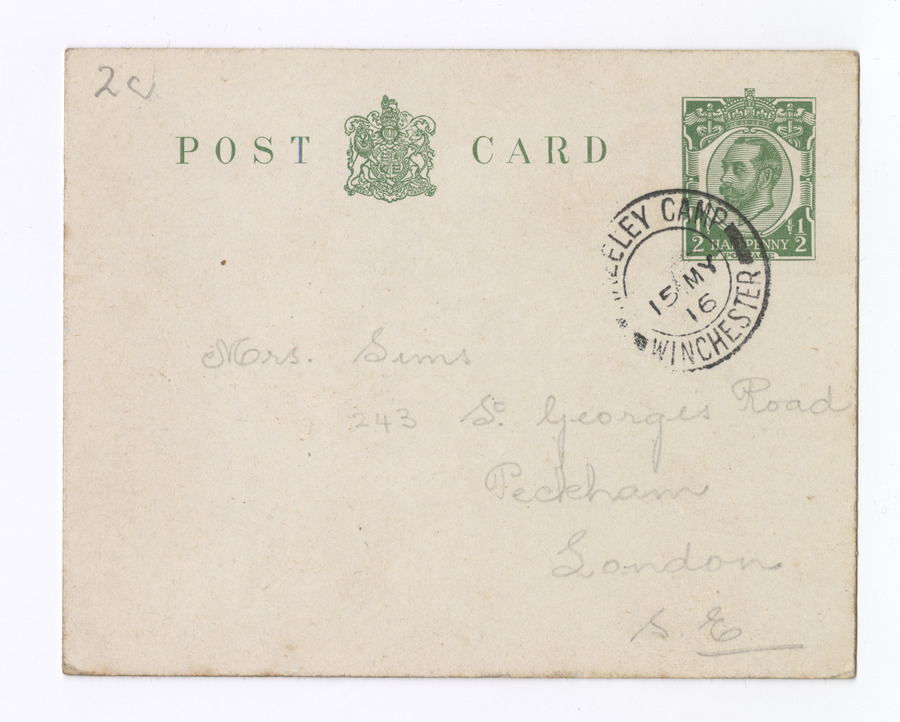 2
POST CARD
1/2 HALFPENNY 1/2
POSTAGE
ELEY CAMP
15 MY
16
WINCHESTER
Mrs. Sims
243 St. Georges Road
Peckham
London
S. E